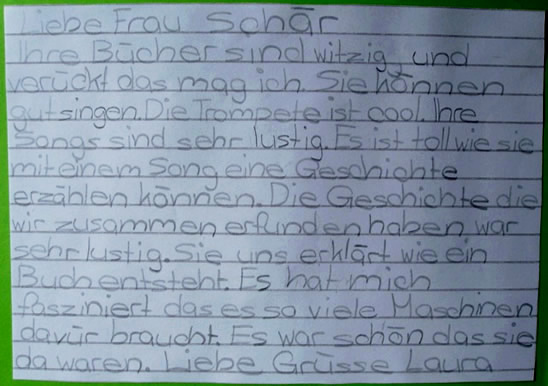 Liebe Frau Schär
Ihre Bücher sind witzig und
verückt das mag ich. Sie können
gut singen. Die Trompete ist cool. Ihre
Songs sind sehr lustig. Es ist toll wie sie
mit einem Song eine Geschichte
erzählen können. Die Geschichte die
wir zusammen erfunden haben war
sehr lustig. Sie uns erklärt wie ein
Buch entsteht. Es hat mich
fasziniert das es so viele Maschinen
davür braucht. Es war schön das sie
da waren. Liebe Grüsse Laura